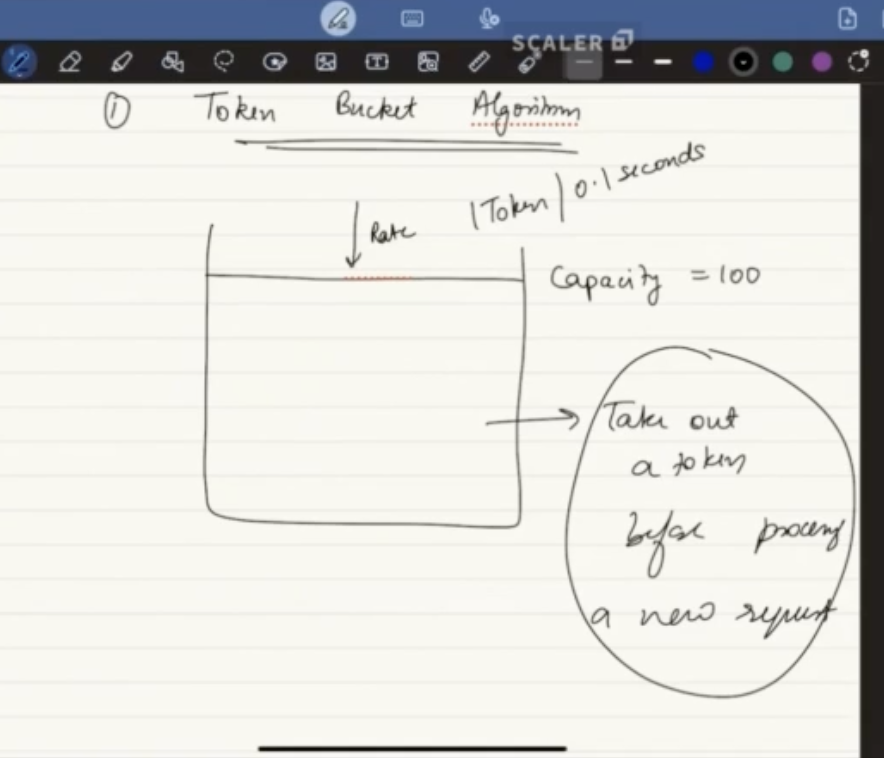 SCALER
① Token Bucket Algorithm
1 Token / 0.1 seconds
Rate
Capacity = 100
Take out
a token
before processing
a new request